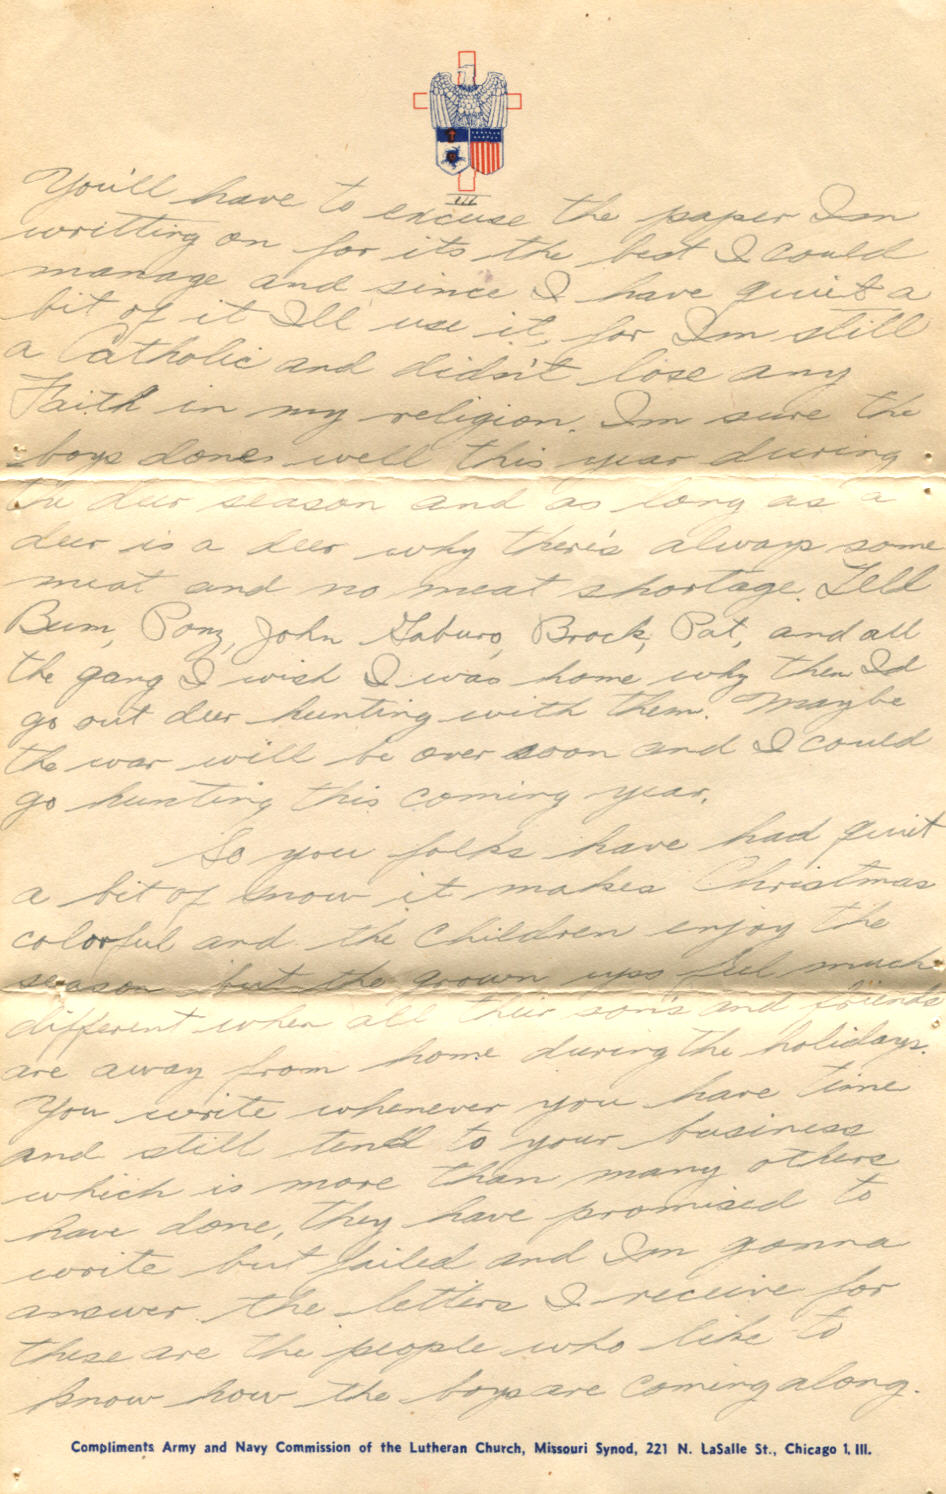 III
You'll have to excuse the paper Im
writting on for its the best I could
manage and since I have quit a
bit of it Ill use it, for Im still
a Catholic and didn't lose any
Faith in my religion. Im sure the
boys done well this year during
the deer season and as long as a
deer is a deer why there's always some
meat and no meat shortage. Tell
Bum, Pony, John Gaburo, Brock, Pat, and all
the gang I wish I was home why then Id
go out deer hunting with them. Maybe
the war will be over soon and I could
go hunting this coming year.
So you folks have had quit
a bit of snow it makes Christmas
colorful and the children enjoy the
season but the grown ups feel much
different when all their son's and friends
are away from home during the holidays.
You write whenever you have time
and still tend to your business
which is more than many others
have done, they have promised to
write but failed and Im gonna
answer the letters I receive for
these are the people who like to
know how the boys are coming along.
Compliments Army and Navy Commission of the Lutheran Church, Missouri Synod, 221 N. LaSalle St., Chicago 1, Ill.